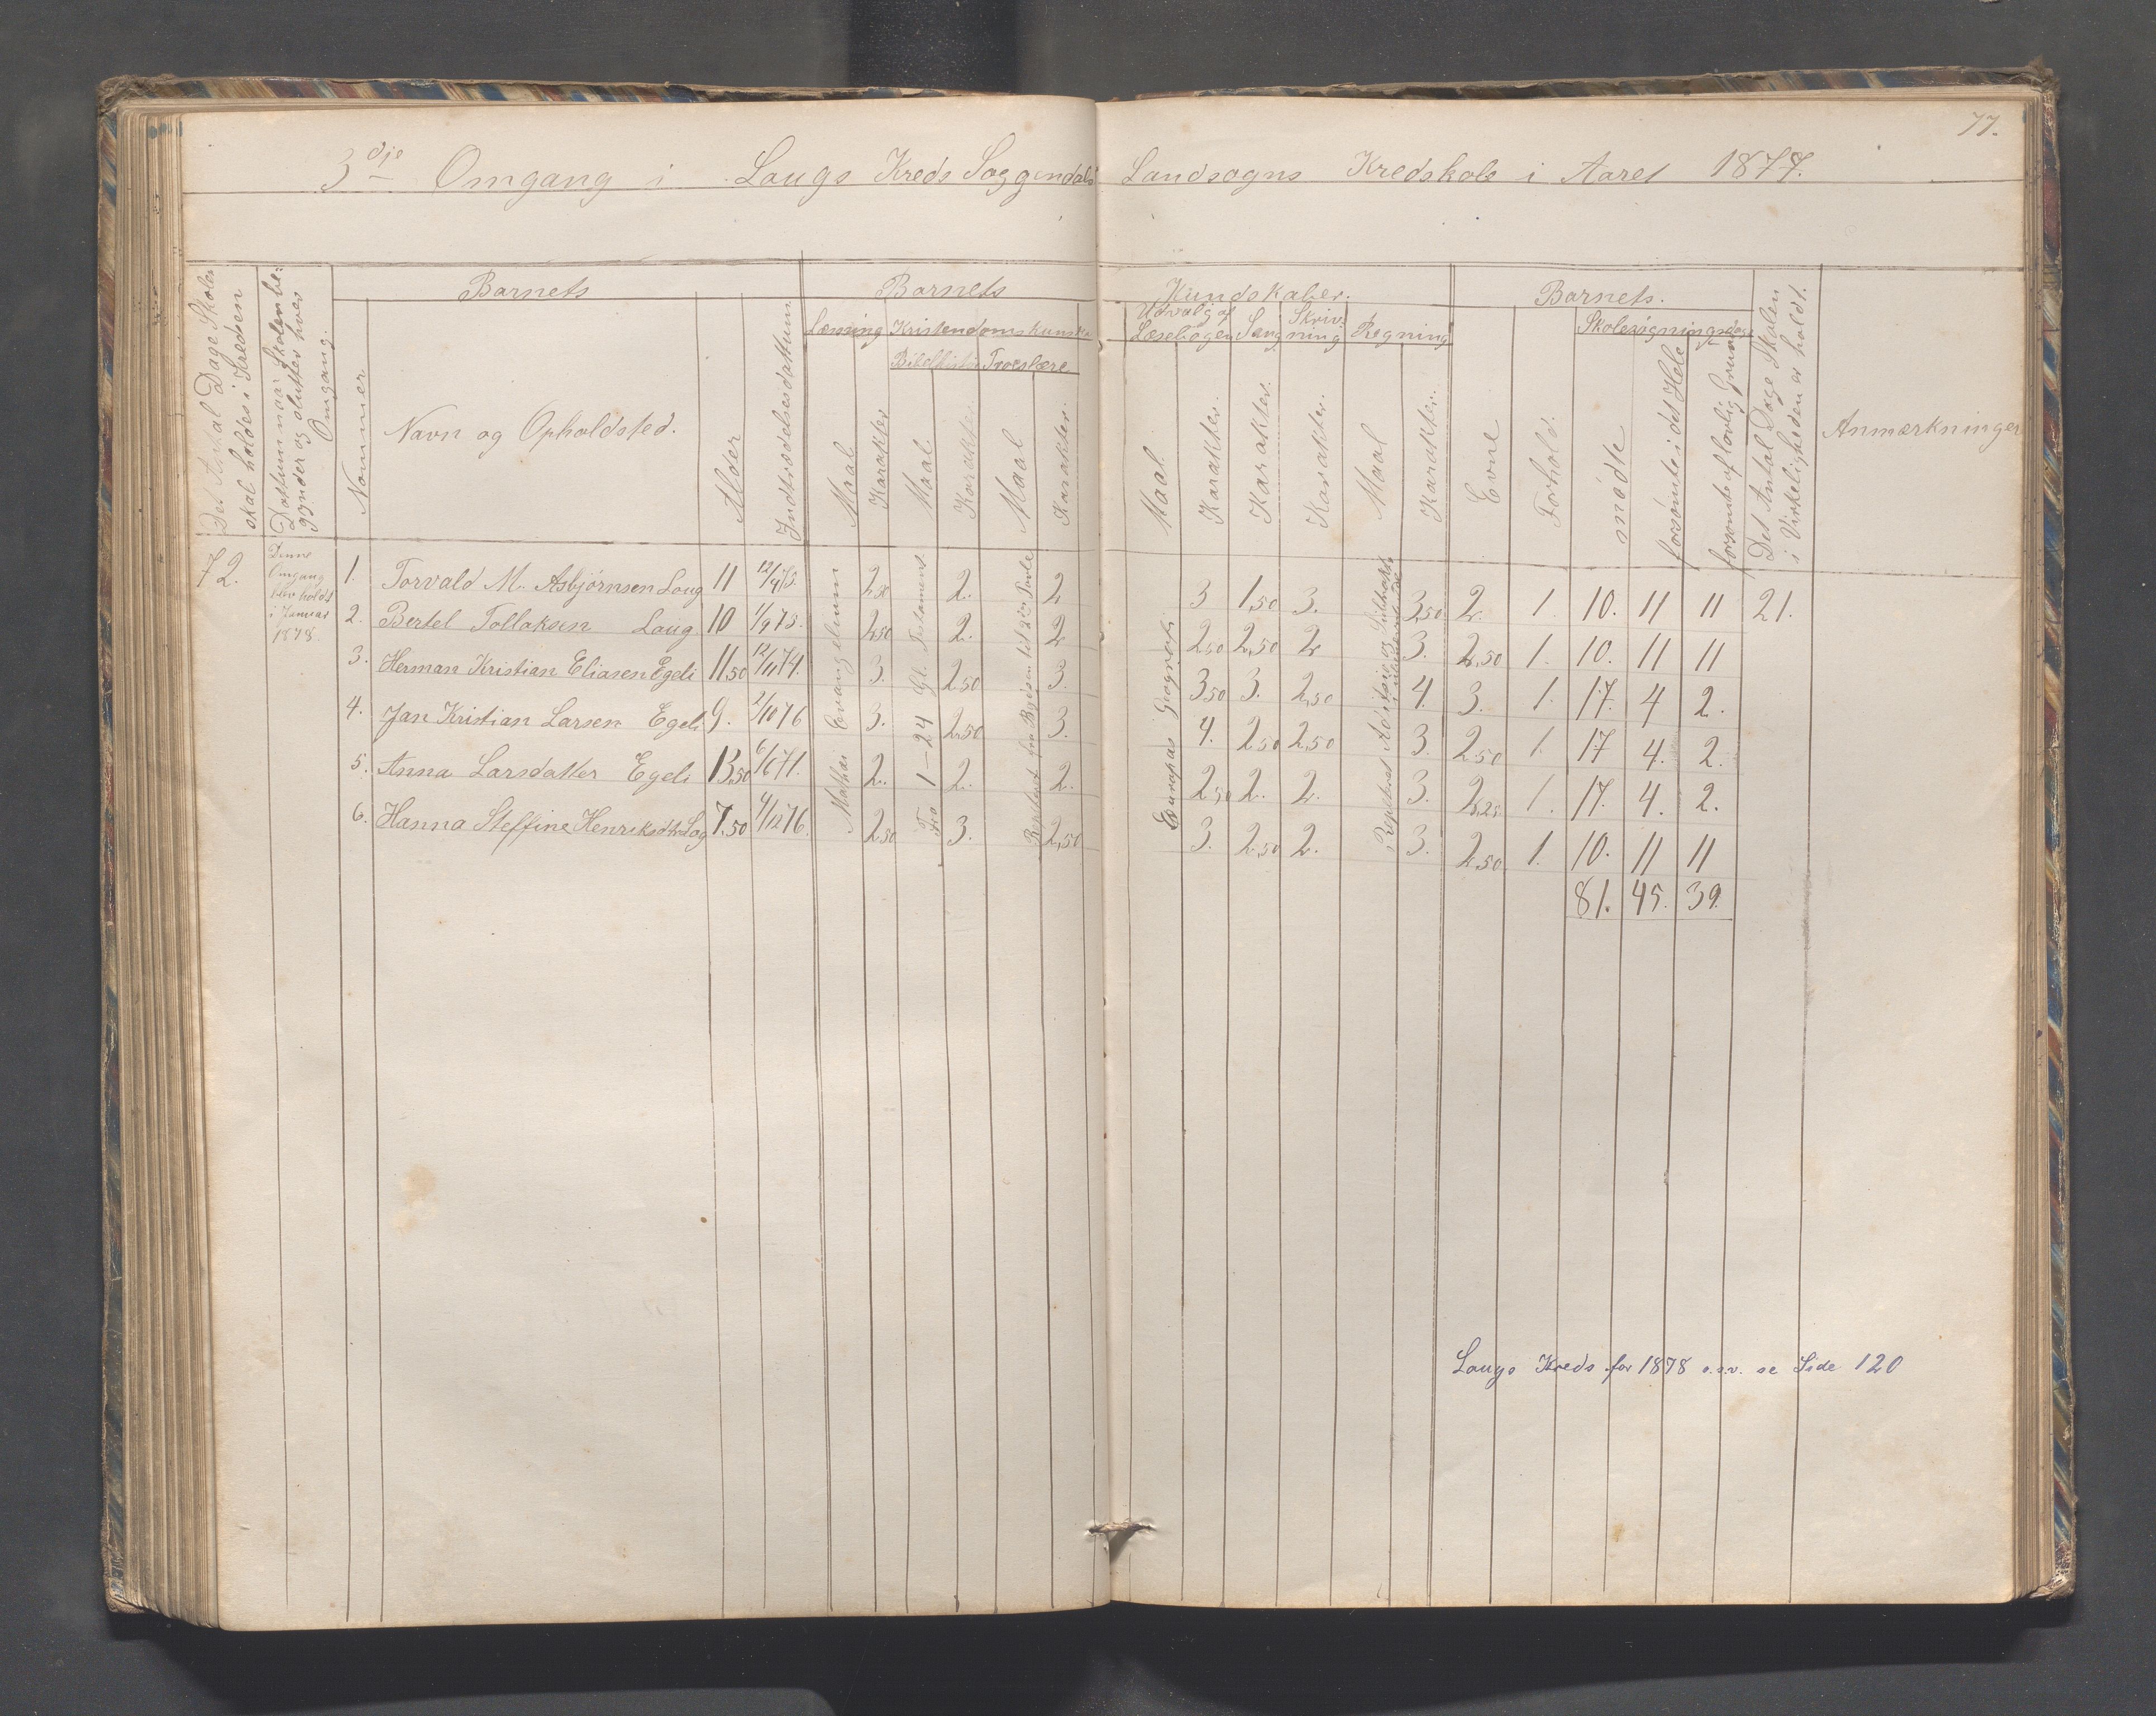 77.
3dje Omgang i Laugs Kreds Soggendals Landsogns Kredskole i Aaret 1877.
Det Antal Dage Skolen skal holdes i Kredsen
Datum naar Skolen begynder og slutter hver Omgang.
Barnets
Nommer
Navn og Opholdsted.
Alder
Indtrædelsesdatum
Barnets Kundskaber.
Læsning Kristendomskundskab
Bibelhistorie Troeslære
Maal
Karakter
Maal
Karakter
Maal
Karakter.
Udvalg af Læsebogen
Sang
Skrivning
Regning
Maal
Karakter.
Karakter.
Karakter.
Maal
Karakter.
Barnets.
Evne
Forhold.
Skolesøgningsdage
mødte
forsømte i det Hele
forsømte af lovlig Grund
Det Antal Dage Skolen i Virkeligheden er holdt.
Anmærkninger
72.
Denne
Omgang
blev holdt
i Januar
1878.
Mathæi Evangelium
Gl. Testament
Fra 1-24
Europas Geografi
1. Torvald M. Asbjørnsen Laug 11 12/4 73. 2,50 2. 2 3 1,50 3. 3,50 2. 1. 10. 11 11 21.
2. Bertel Tollaksen Laug 10 1/9 75. 2,50 2. 2 2,50 2,50 2 3. 2,50 1. 10. 11 11
3. Herman Kristian Eliasen Egeli 11,50 12/11 74. 3. 2,50 3. 3,50 3. 2,50 4. 3. 1. 17. 4 2.
4. Jan Kristian Larsen Egeli 9. 2/10 76 3. 2,50 3. 4. 2,50 2,50 3. 2,50 1. 17 4. 2.
5. Anna Larsdatter Egeli 13,50 6/6 71. 2. 2. 2. 2,50 2. 2. 3. 2,25 1. 17. 4. 2.
6. Hanna Steffine Henriksdtr Log 7,50 4/12 76. 2,50 3. 2,50 3. 2,50 2. 3. 2,50 1. 10. 11 11
81. 45. 39.
Laugs Kreds for 1878 o.s.v. se Side 120